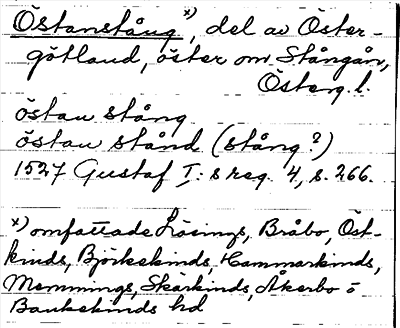 Östanstång x), del av Öster-
götland, öster om Stångån,
Österg. l.
östan stång
östan stånd (stång?)
1527 Gustaf I:s reg. 4, s. 266.
x) omfattade Lösings, Bråbo, Öst-
kinds, Björkekinds, Hammarkinds,
Memmings, Skärkinds, Åkerbo o
Bankekinds hd